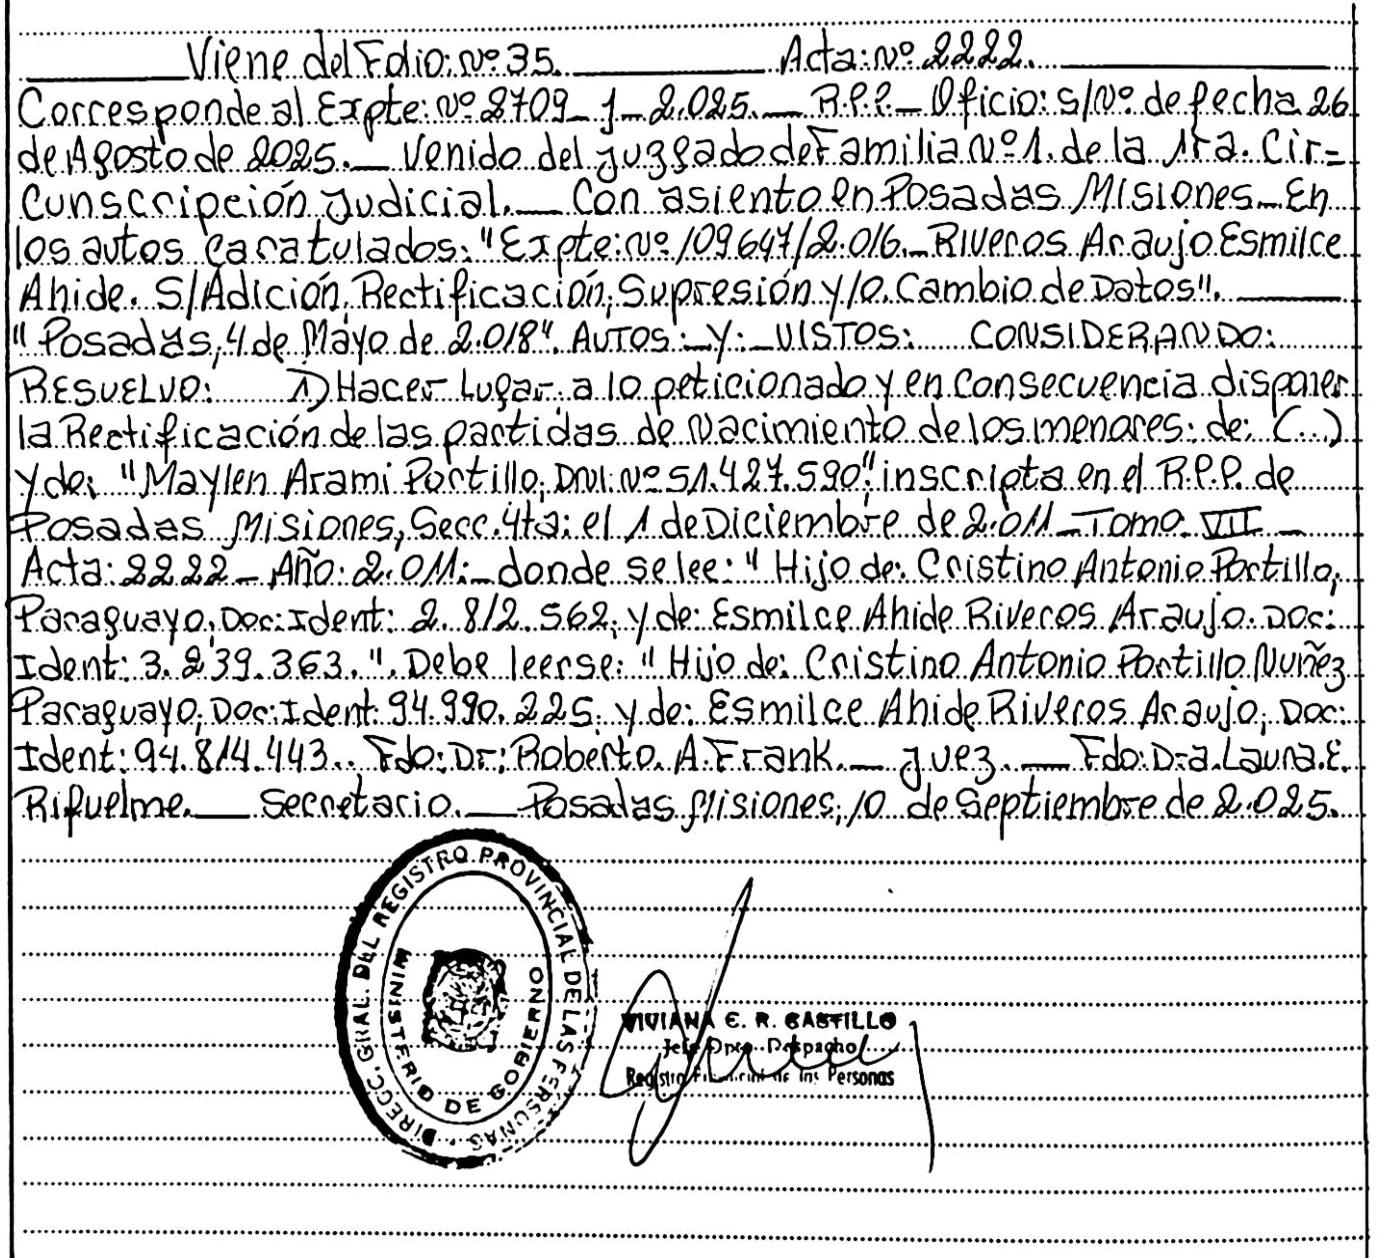 Viene del Folio: Nº 35. Acta: Nº 2222.
Corresponde al Expte: Nº 2709-J-2.025.— R.P.P.— Oficio: S/Nº de fecha 26
de Agosto de 2025.— Venido del Juzgado de Familia Nº 1. de la 1ra. Cir=
cunscripción Judicial.— Con asiento en Posadas Misiones— En
los autos caratulados: "Expte: Nº 109647/2.016.— Riveros Araujo Esmilce
Ahide. S/Adición, Rectificación, Supresión y/o Cambio de Datos".
"Posadas, 4 de Mayo de 2.018". AUTOS: Y: VISTOS: CONSIDERANDO:
RESUELVO: 1) Hacer Lugar a lo peticionado y en consecuencia disponer
la Rectificación de las partidas de Nacimiento de los menores: de: (...)
y de: "Maylen Arami Portillo, DNI: Nº 51.427.590", inscripta en el R.P.P. de
Posadas Misiones, Secc. 4ta: el 1 de Diciembre de 2.011— Tomo VII—
Acta: 2222— Año: 2.011:— donde se lee: "Hijo de: Cristino Antonio Portillo,
Paraguayo, Doc: Ident: 2.812.562, y de: Esmilce Ahide Riveros Araujo. Doc:
Ident: 3.239.363.". Debe leerse: "Hijo de: Cristino Antonio Portillo Nuñez
Paraguayo, Doc: Ident: 94.990.225, y de: Esmilce Ahide Riveros Araujo, Doc:
Ident: 94.814.443.. Fdo: Dr: Roberto. A. Frank.— Juez.— Fdo: Dra. Laura. E.
Rifuelme.— Secretario.— Posadas Misiones, 10 de Septiembre de 2.025.
DIRECC. GRAL. DEL REGISTRO PROVINCIAL DE LAS PERSONAS
MINISTERIO DE GOBIERNO
VIVIANA E. R. CASTILLO
Jefe Dpto. Despacho
Registro Provincial de las Personas